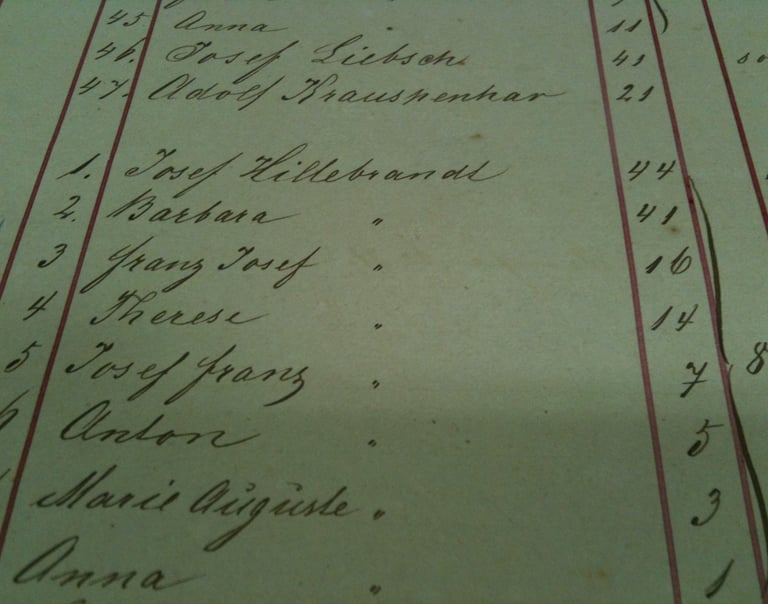 45 Anna " 11
46. Josef Liebsch 41
47. Adolf Krauspenhar 21
1. Josef Hillebrandt 44
2. Barbara " 41
3 Franz Josef " 16
4 Therese " 14
5 Josef Franz " 7 8
6 Anton " 5
Marie Auguste " 3
Anna " 1